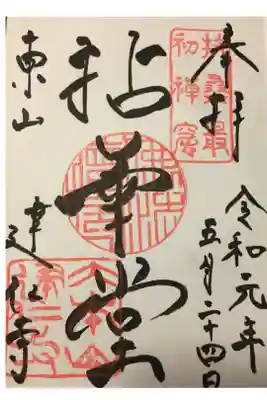 奉拝
扶桑最
初禅窟
令和元年
五月二十四日
拈華堂
東山
建仁寺